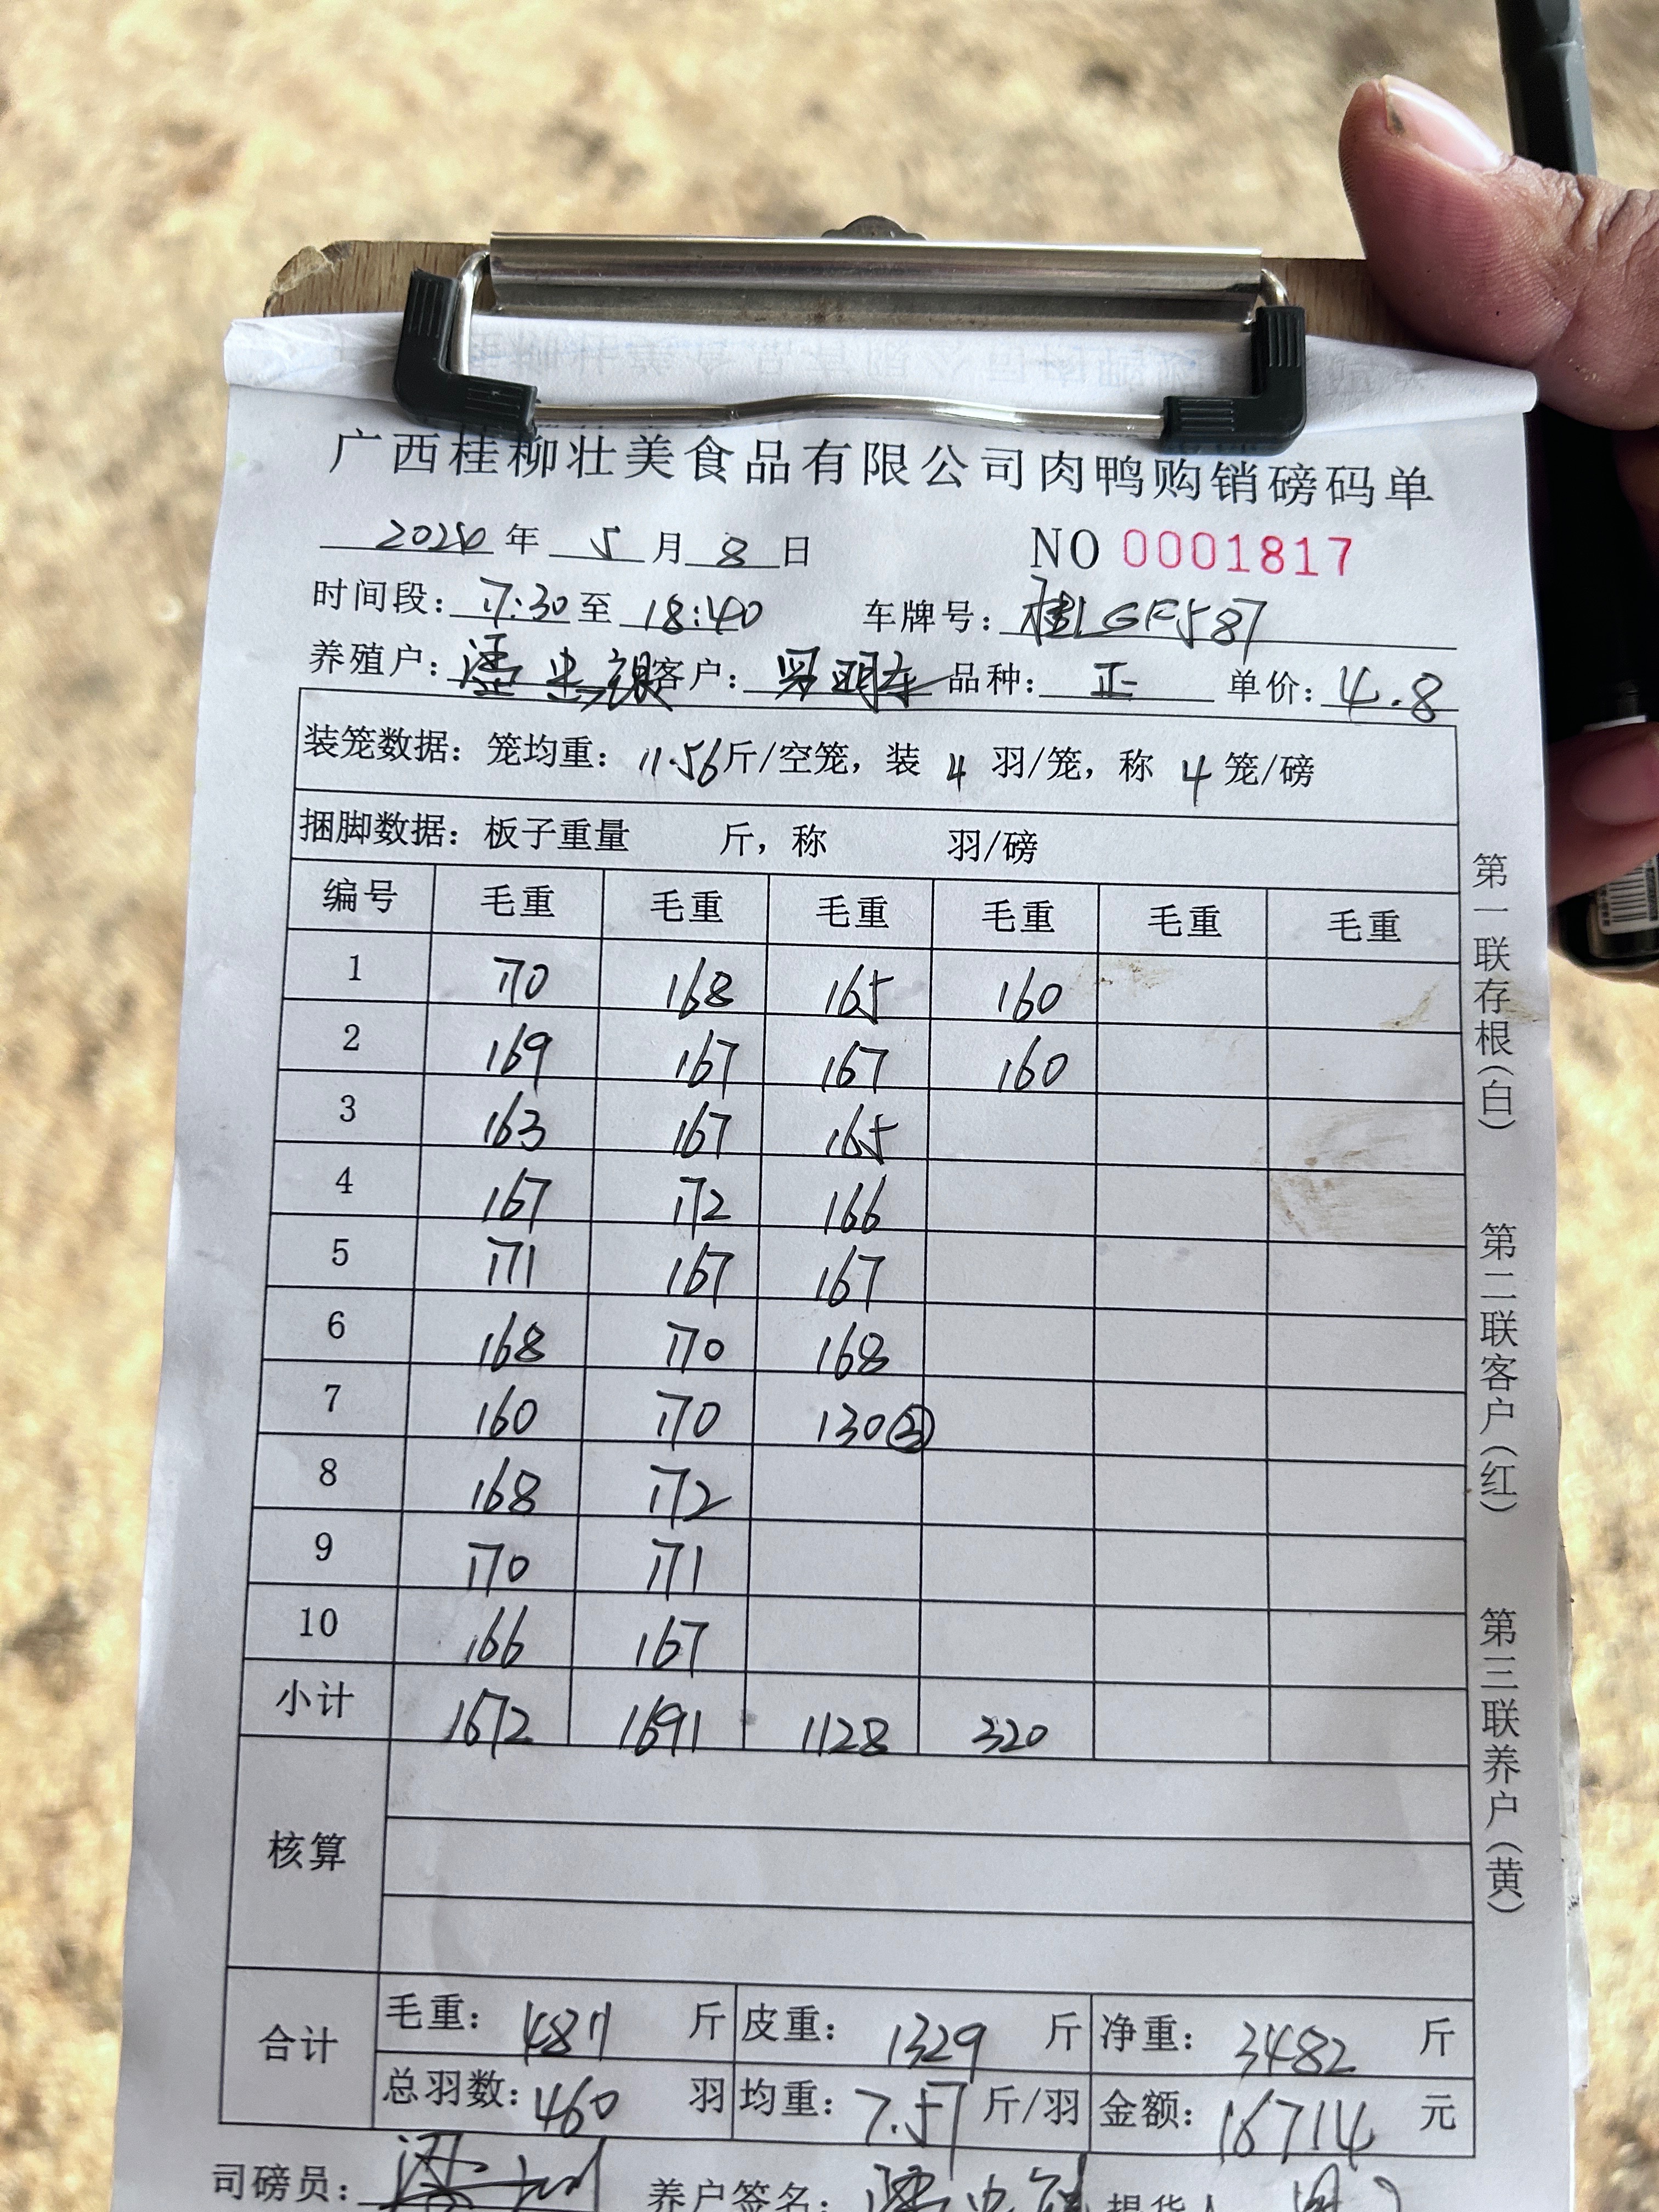 广西桂柳壮美食品有限公司肉鸭购销磅码单
年 5 月 8 日 NO 0001817
时间段: 17:30 至 18:40 车牌号: 桂LGF587
养殖户: 客户: 品种: 正 单价: 4.8
装笼数据: 笼均重: 11.56 斤/空笼, 装 4 羽/笼, 称 4 笼/磅
捆脚数据: 板子重量 斤, 称 羽/磅
编号 毛重 毛重 毛重 毛重 毛重 毛重
1 170 168 165 160
2 169 167 167 160
3 163 167 165
4 167 172 166
5 171 167 167
6 168 170 168
7 160 170 130③
8 168 172
9 170 171
10 166 167
小计 1672 1691 1128 320
核算
合计
毛重: 4811 斤 皮重: 1329 斤 净重: 3482 斤
总羽数: 460 羽 均重: 7.57 斤/羽 金额: 16714 元
司磅员: 养户签名: 提货人
第一联存根(白)
第二联客户(红)
第三联养户(黄)